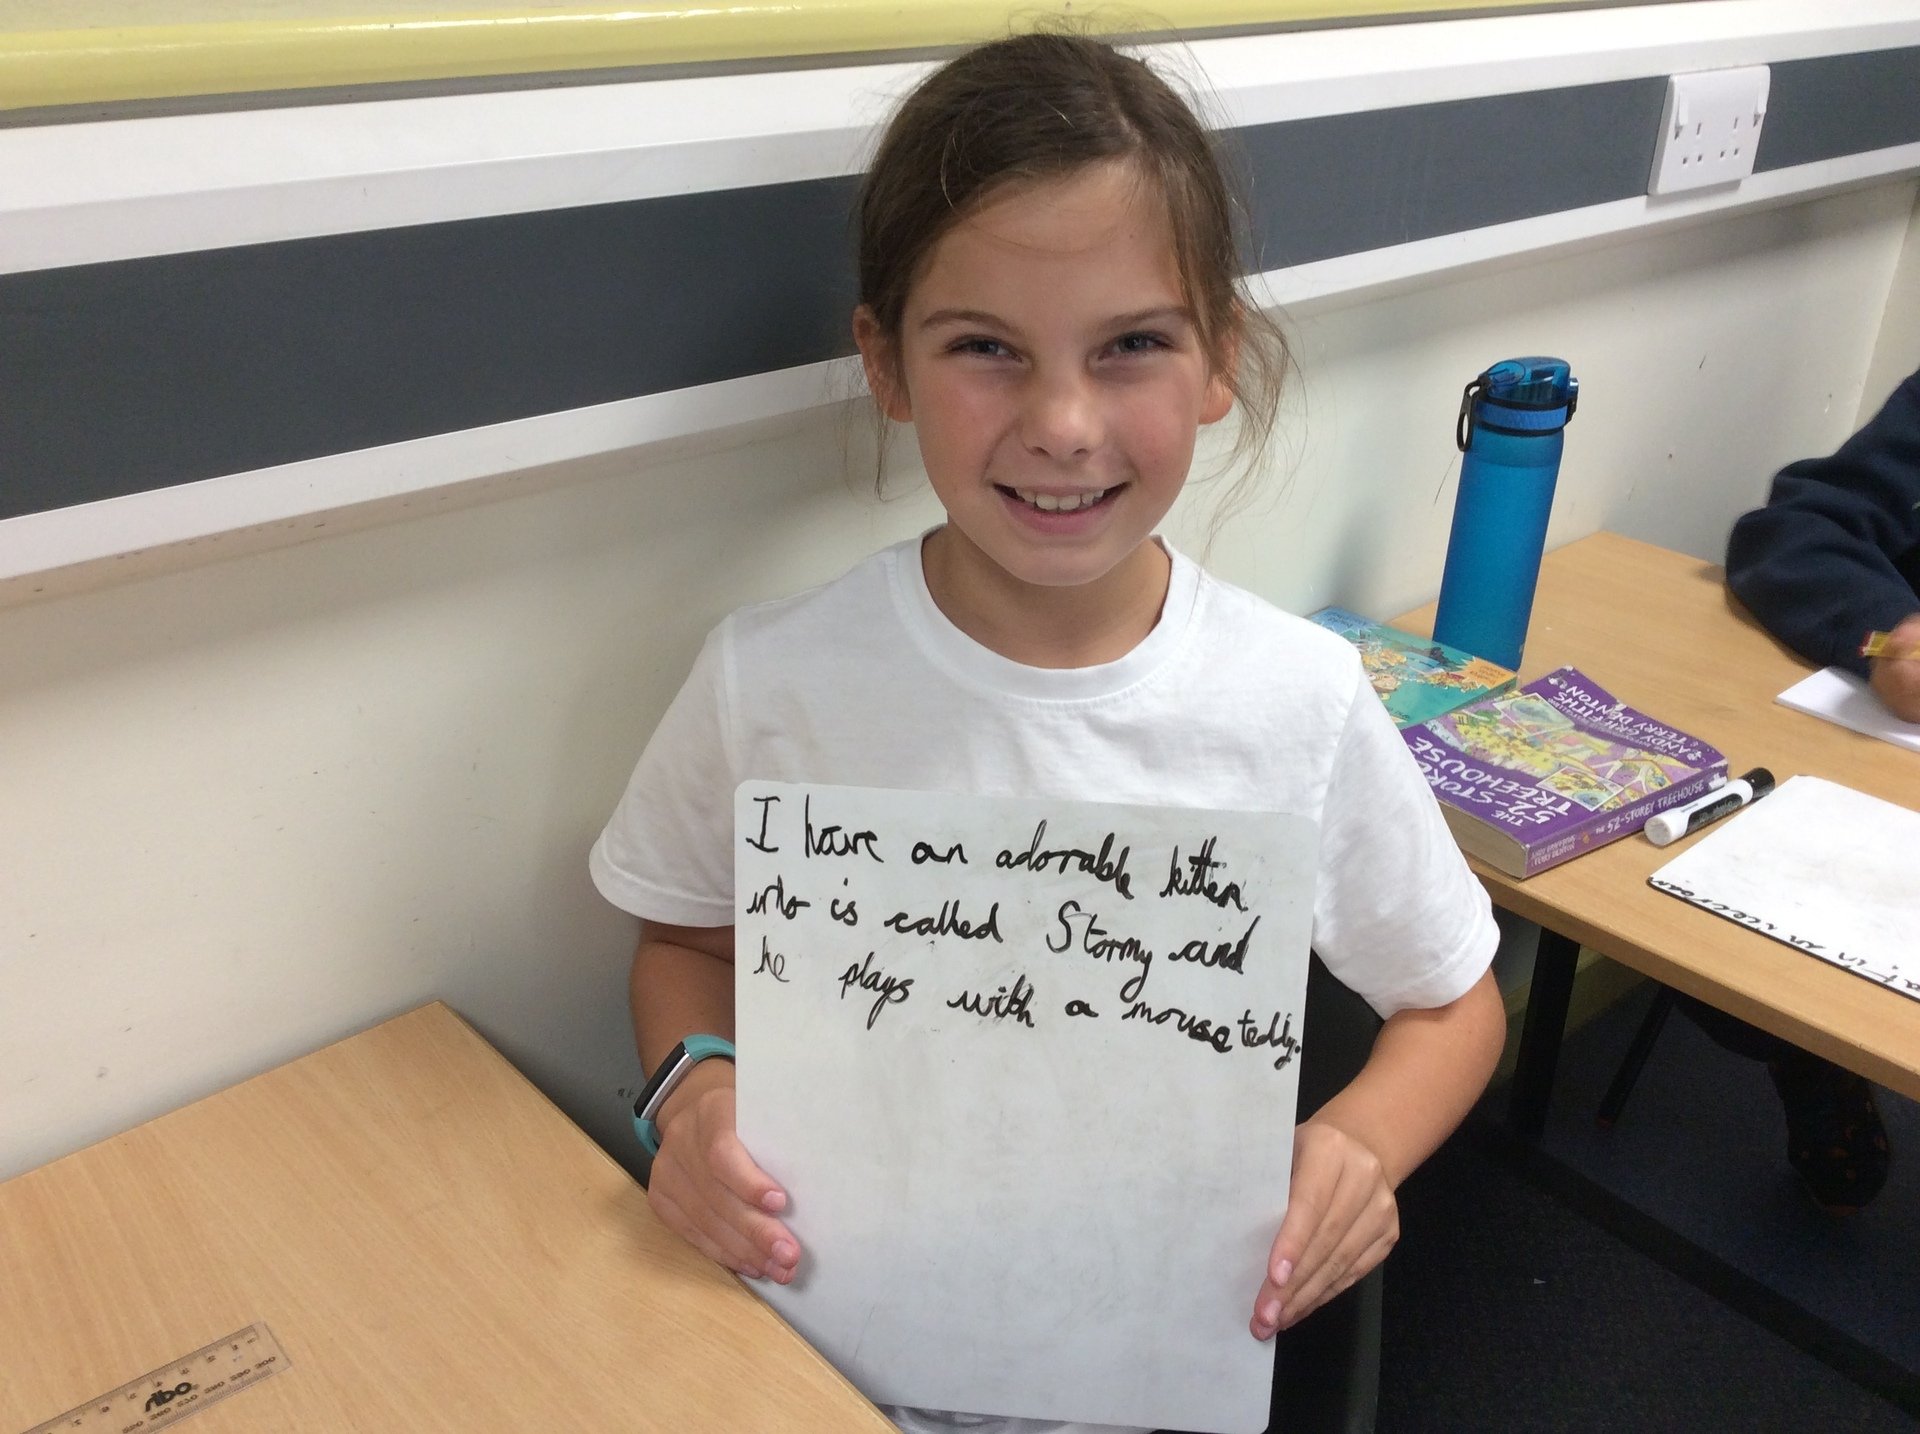 I have an adorable kitten
who is called Stormy and
he plays with a mouse teddy.
THE
52-STOREY
TREEHOUSE
ANDY GRIFFITHS
& TERRY DENTON
52-STOREY TREEHOUSE